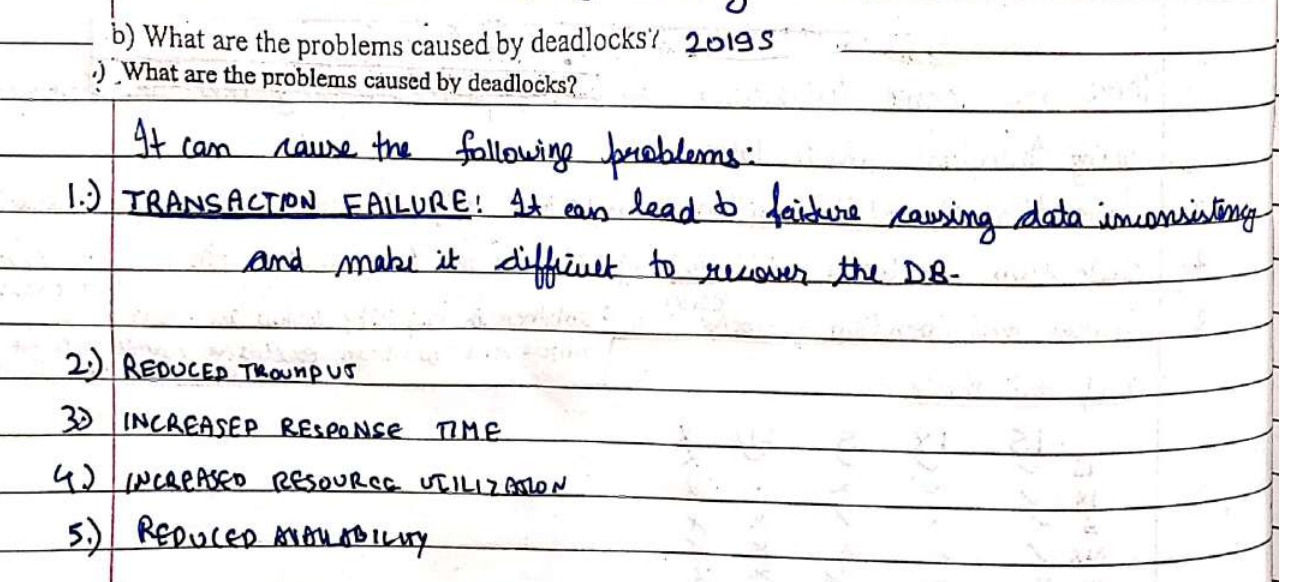 b) What are the problems caused by deadlocks? 2019S
.) What are the problems caused by deadlocks?
It can cause the following problems:
1.) TRANSACTION FAILURE: It can lead to failure causing data inconsistency
and make it difficult to recover the DB-
2.) REDUCED
3) INCREASED RESPONSE TIME
4.) INCREASED RESOURCE UTILIZATION
5.) REDUCED AVAILABILITY